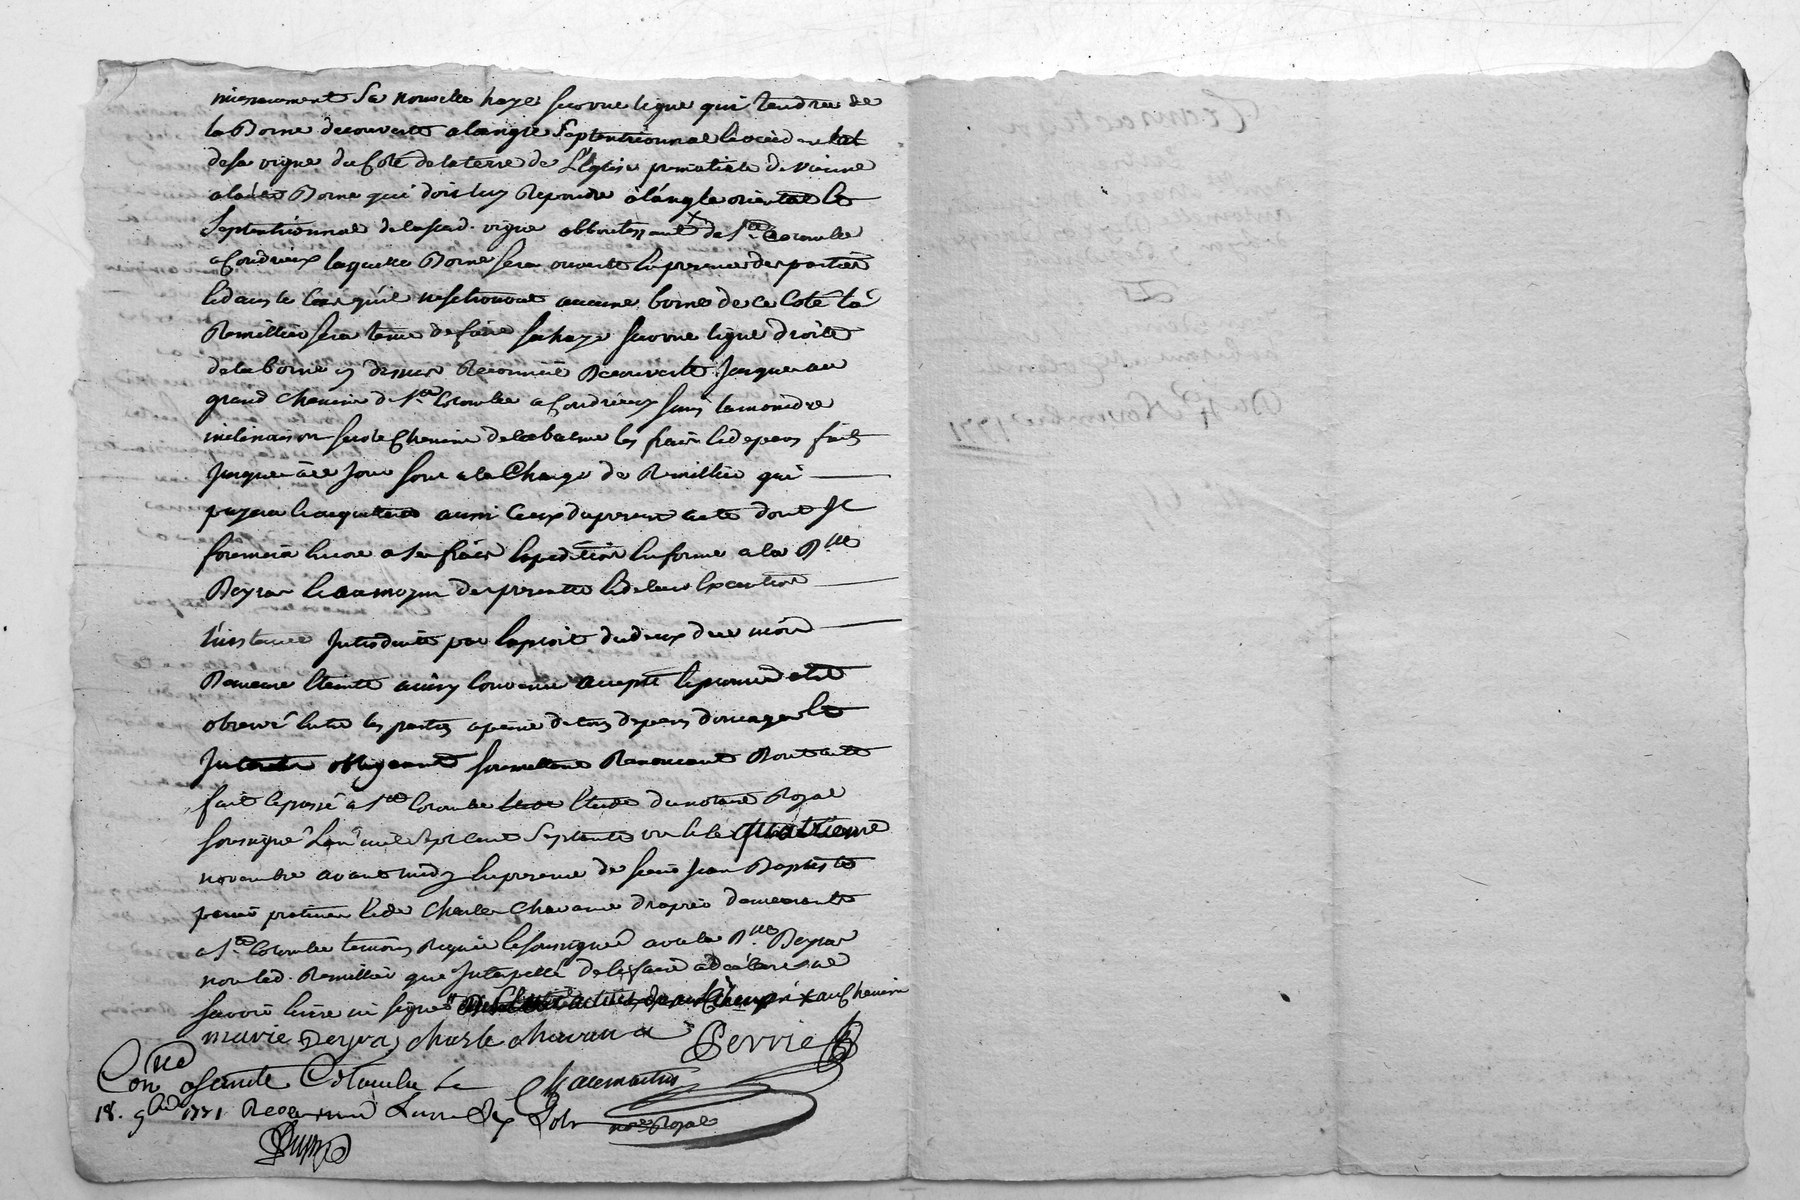 sa nouvelle haye sur une ligne qui tendra de
la Borne decouverte a langle Septentrionnal
de sa vigne du Coté de la terre de L'Eglise primatiale de vienne
a la Borne qui doit luy Repondre à l'angle oriental et
Septentrionnal de lasd. vigne de Ste Colombe
a Condrieux laquelle Borne sera ouverte en presence des parties
et dans le Cas qu'il ne se trouvat aucune borne de ce Coté la
Remillier sera tenu de faire sa haye sur une ligne droite
de la borne cy dessus Reconnüe Decouverte Jusques au
grand chemin de Ste Colombe a Condrieux sans la moindre
inclinaison sur le Chemin de la balme les frais et depens fait
Jusques à ce Jour sont a la Charge de Remillier qui
payera et acquittera aussi Ceux du present acte dont Il
fournira encore a ses frais Expedition en forme a la Dlle
Deyras et au moyen des presentes et de leur Execution
L'instance Introduite par Exploit du deux du mois
Demeure Eteinte ainsy Convenu accepté et promis etre
observé entre les parties a peine de tous depens domages et
Interets obligeant soumettant Renonçant Dont acte
fait et passé a Ste Colombe Etude du notaire Royal
soussigné L'an mil sept cent septante un et le quatrieme
novembre avant midy en presence de sieur Jean Baptiste
perrié praticien et de Charles Chavanne drapier demeurants
a Ste Colombe temoins Requis et soussignés avec la Dlle Deyras
non led. Remillier que Interpellé de le faire a declaré ne
savoir Ecrire ni signer x au Chemin
marie Deyras charle chavana Perrié
Conllé a Sainte Colombe Le
18. 9bre 1771 Reçu
nore Royal
Transaction
Du 4e Novembre 1771